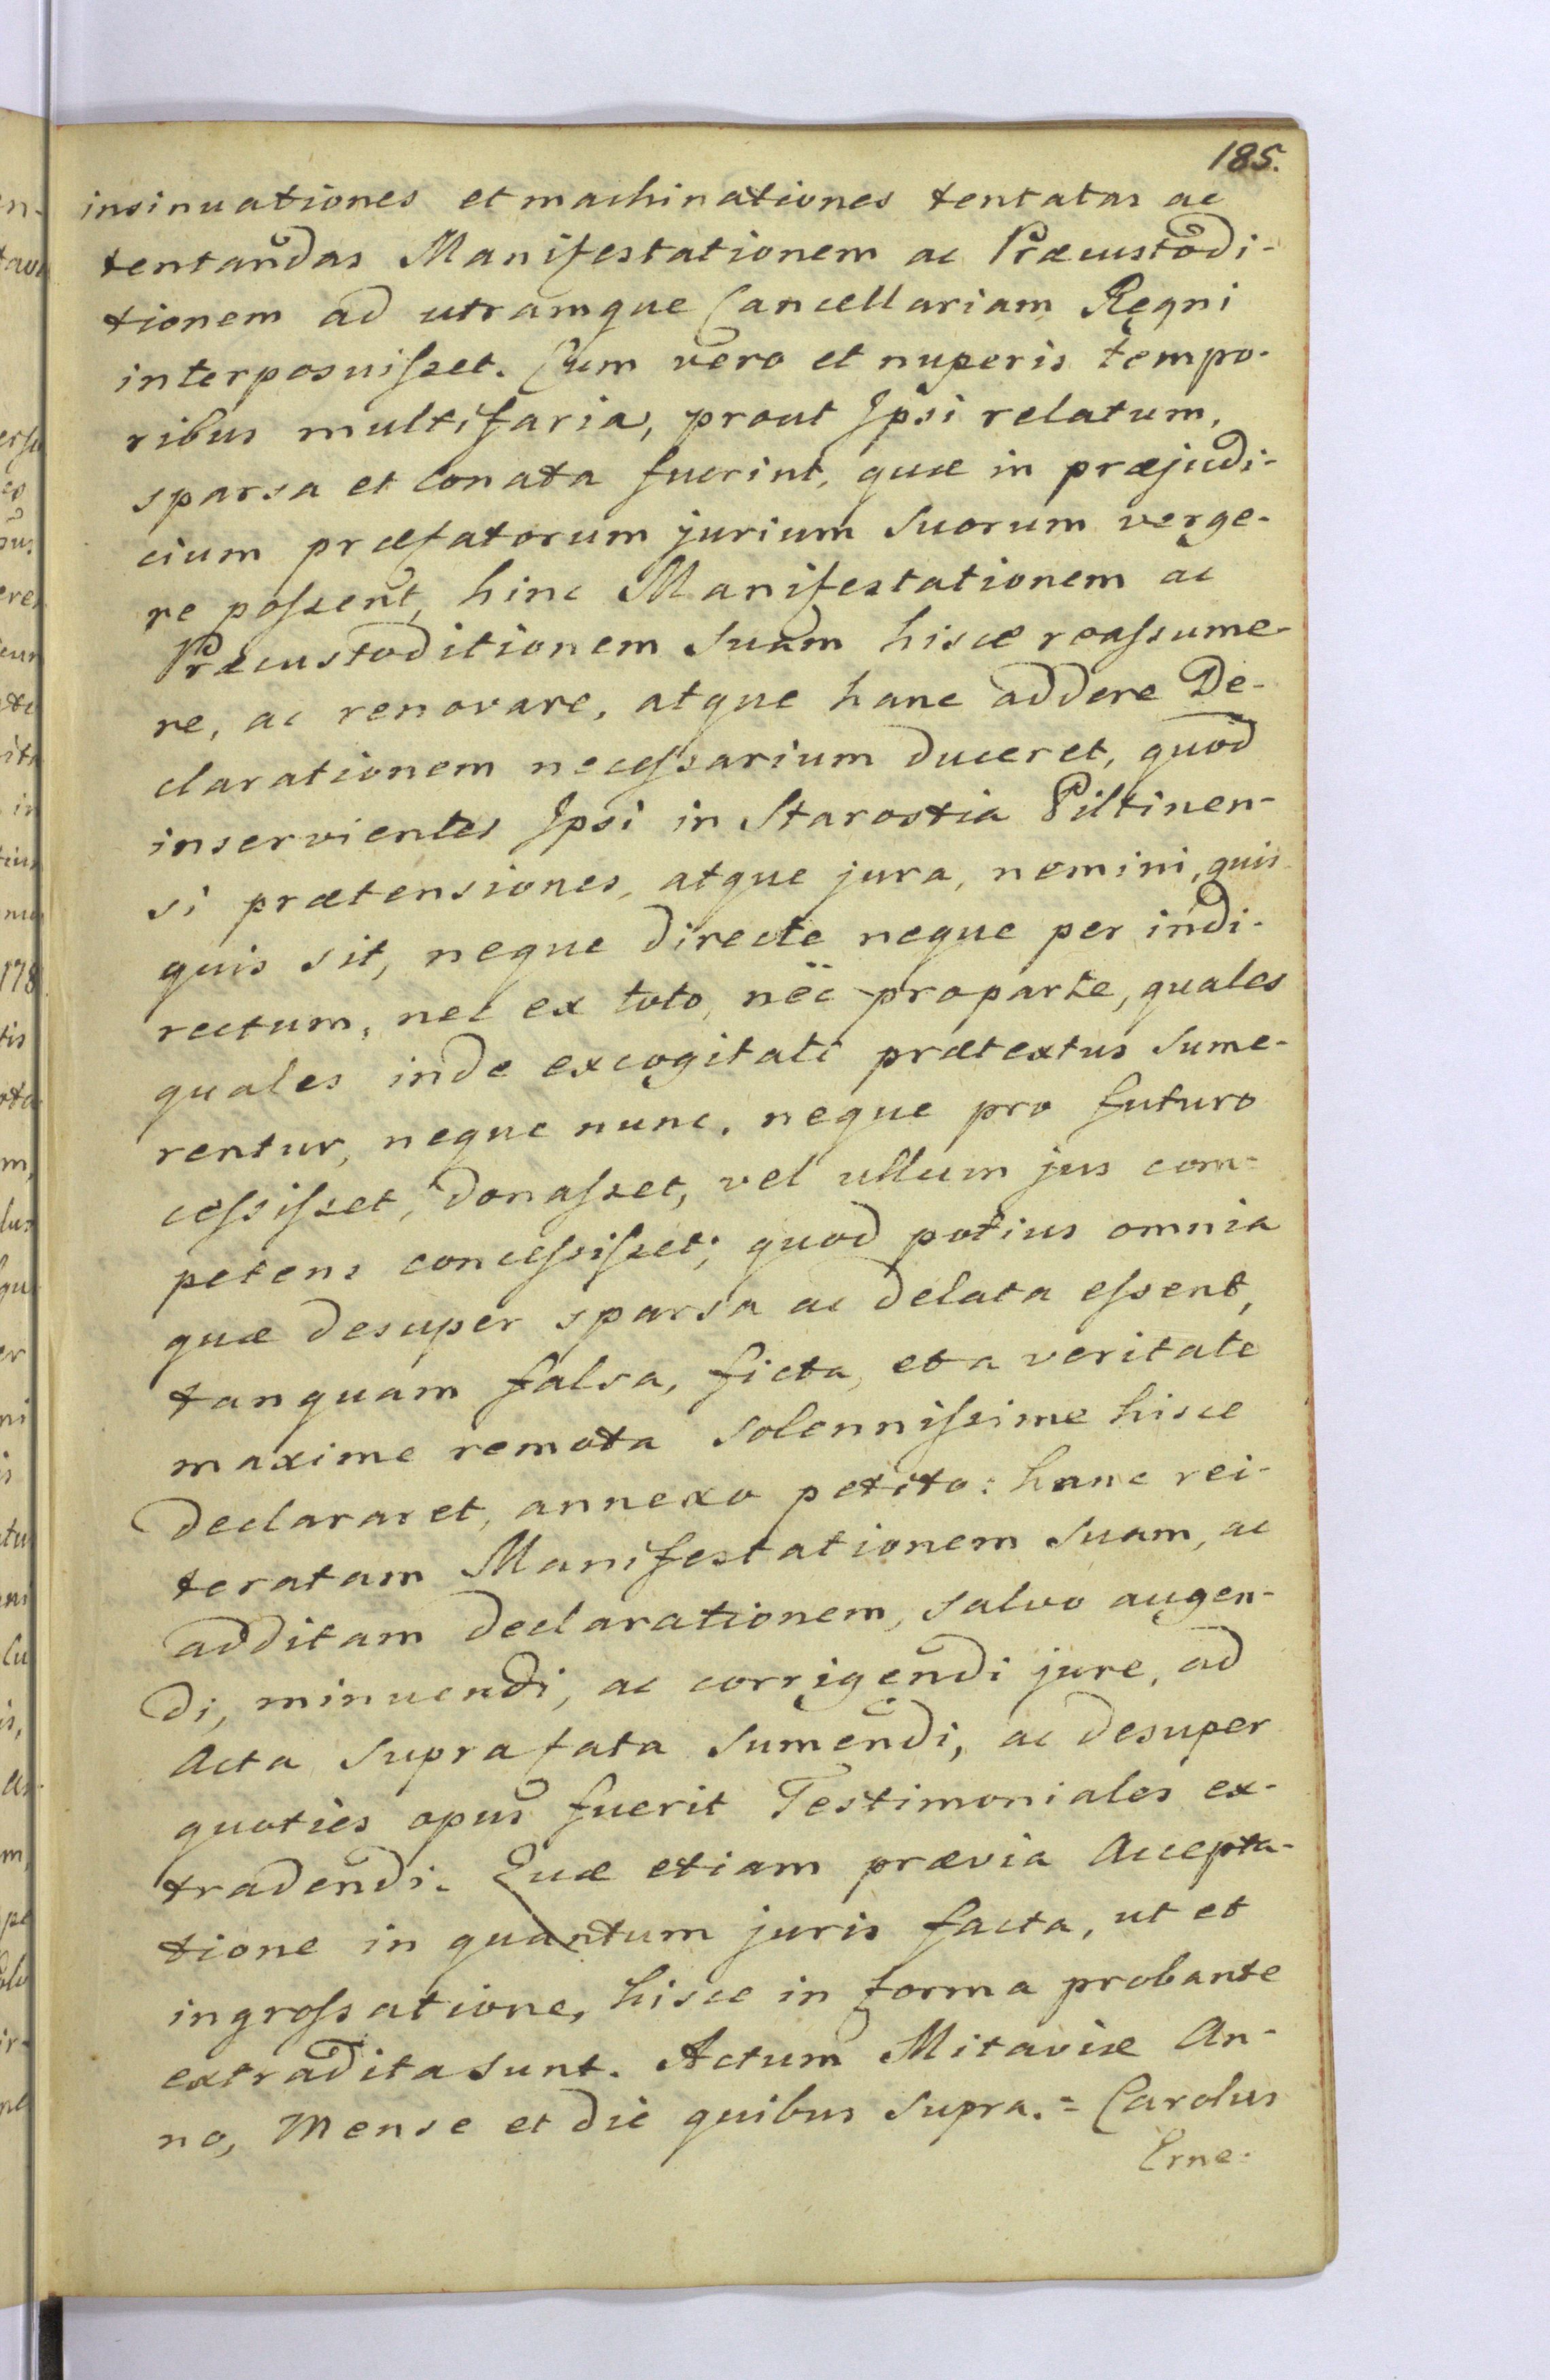 185.
insinuationes et machinationes tentatas ac
tentandas Manifestationem ac Præcustodi-
tionem ad utramque Cancellariam Regni
interposuisset. Cum vero et nuperis tempo-
ribus multifaria, prout Ipsi relatum,
sparsa et conata fuerint, quæ in præjudi-
cium præfatorum jurium suorum verge-
re possent, hinc Manifestationem ac
Præcustoditionem suam hisce reassume-
re, ac renovare, atque hanc addere De-
clarationem necessarium duceret, quod
inservientes Ipsi in Starostia Piltinen-
si prætensiones, atque jura, nemini, quis-
quis sit, neque directe neque per indi-
rectum, nec ex toto, nec pro parte, quales
quales inde excogitati prætextus sume-
rentur, neque nunc, neque pro futuro
cessisset, donasset, vel ullum jus com-
petens concessisset; quod potius omnia
quæ desuper sparsa ac delata essent,
tanquam falsa, ficta, et a veritate
maxime remota solennissime hisce
declararet, annexo petito: hanc rei-
teratam Manifestationem suam, ac
additam declarationem, salvo augen-
di, minuendi, ac corrigendi jure, ad
Acta suprafata sumendi, ac desuper
quoties opus fuerit Testimoniales ex-
tradendi. Quæ etiam prævia Accepta-
tione in quantum juris facta, ut et
ingrossatione, hisce in forma probante
extradita sunt. Actum Mitaviæ An-
no, Mense et die quibus supra. = Carolus
Erne-